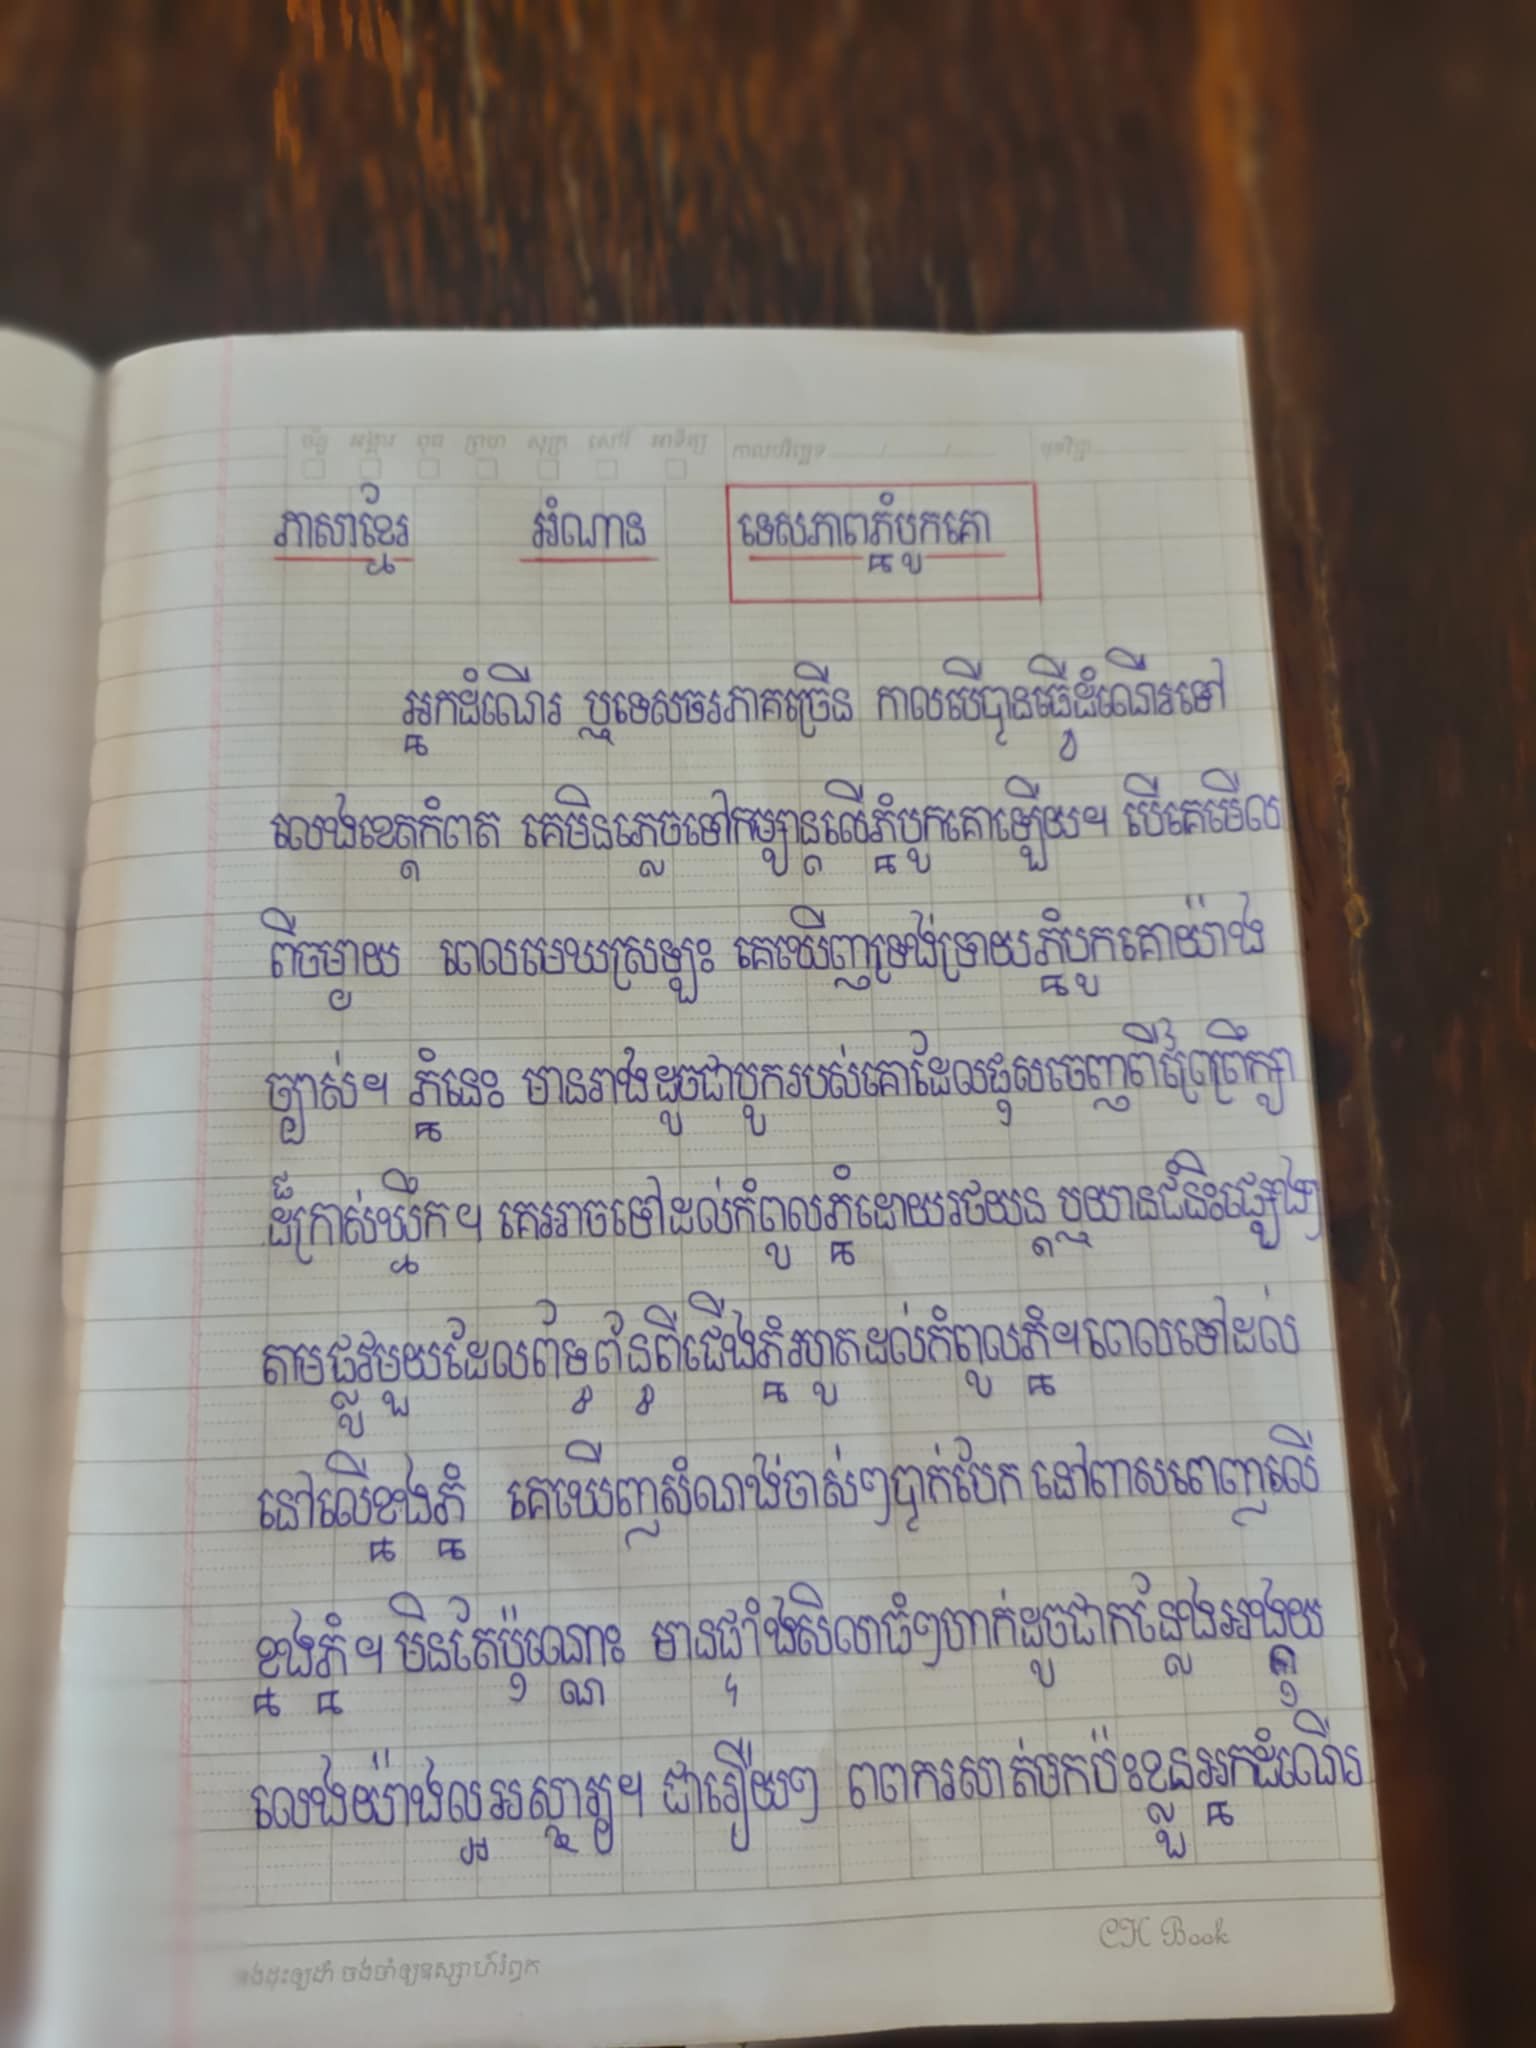 ច័ន្ទ អង្គារ ពុធ ព្រហ សុក្រ សៅរ៍ អាទិត្យ កាលបរិច្ឆេទ ......../......../........
ភាសាខ្មែរ អំណាន ទេសភាពភ្នំបូកគោ
អ្នកដំណើរ ឬទេសចរភាគច្រើន កាលបើបានធ្វើដំណើរទៅ
លេងខេត្តកំពត គេមិនភ្លេចទៅកម្សាន្តលើភ្នំបូកគោឡើយ។ បើគេមើល
ពីចម្ងាយ ពេលមេឃស្រឡះ គេឃើញទ្រង់ទ្រាយភ្នំបូកគោយ៉ាង
ច្បាស់។ ភ្នំនេះ មានរាងដូចជាបូករបស់គោដែលផុសចេញពីព្រៃព្រឹក្សា
ដ៏ក្រាស់ឃ្មឹក។ គេអាចទៅដល់កំពូលភ្នំដោយរថយន្ត ឬយានជំនិះផ្សេងៗ
តាមផ្លូវមួយដែលព័ទ្ធព័ន្ធពីជើងភ្នំរហូតដល់កំពូលភ្នំ។ ពេលទៅដល់
នៅលើខ្នងភ្នំ គេឃើញសំណង់ចាស់ៗបាក់បែក នៅពាសពេញលើ
ខ្នងភ្នំ។ មិនតែប៉ុណ្ណោះ មានផ្ទាំងសិលាធំៗហាក់ដូចជាកន្លែងអង្គុយ
លេងយ៉ាងល្អអស្ចារ្យ។ ជារឿយៗ ពពករសាត់មកប៉ះខ្លួនអ្នកដំណើរ
CH Book